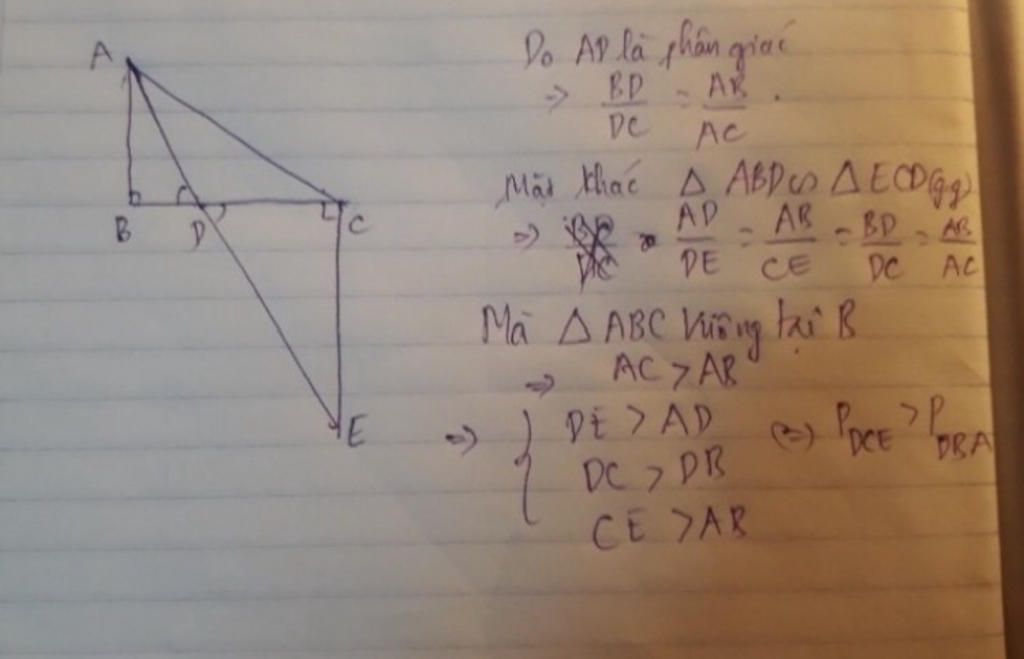 A
B
D
C
E
Do AD là phân giác
=> BD/DC = AB/AC .
Mặt khác Δ ABD ∽ Δ ECD (g.g)
=> AD/DE = AB/CE = BD/DC = AB/AC
Mà Δ ABC vuông tại B
=> AC > AB
=> { DE > AD <=> P_DCE > P_DBA
DC > DB
CE > AB